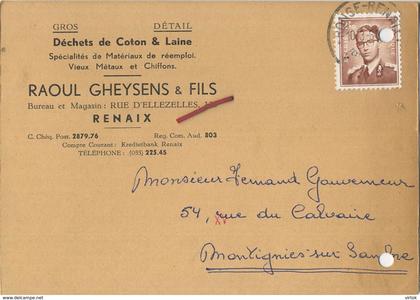 GROS DÉTAIL
Déchets de Coton & Laine
Spécialités de Matériaux de réemploi.
Vieux Métaux et Chiffons.
RAOUL GHEYSENS & FILS
Bureau et Magasin : RUE D'ELLEZELLES,
RENAIX
C. Chèq. Post. 2879.76 Reg. Com. Aud. 803
Compte Courant : Kredietbank Renaix
TÉLÉPHONE : (055) 225.45
Monsieur Fernand Gouverneur
54, rue du Calvaire
Montignies sur Sambre